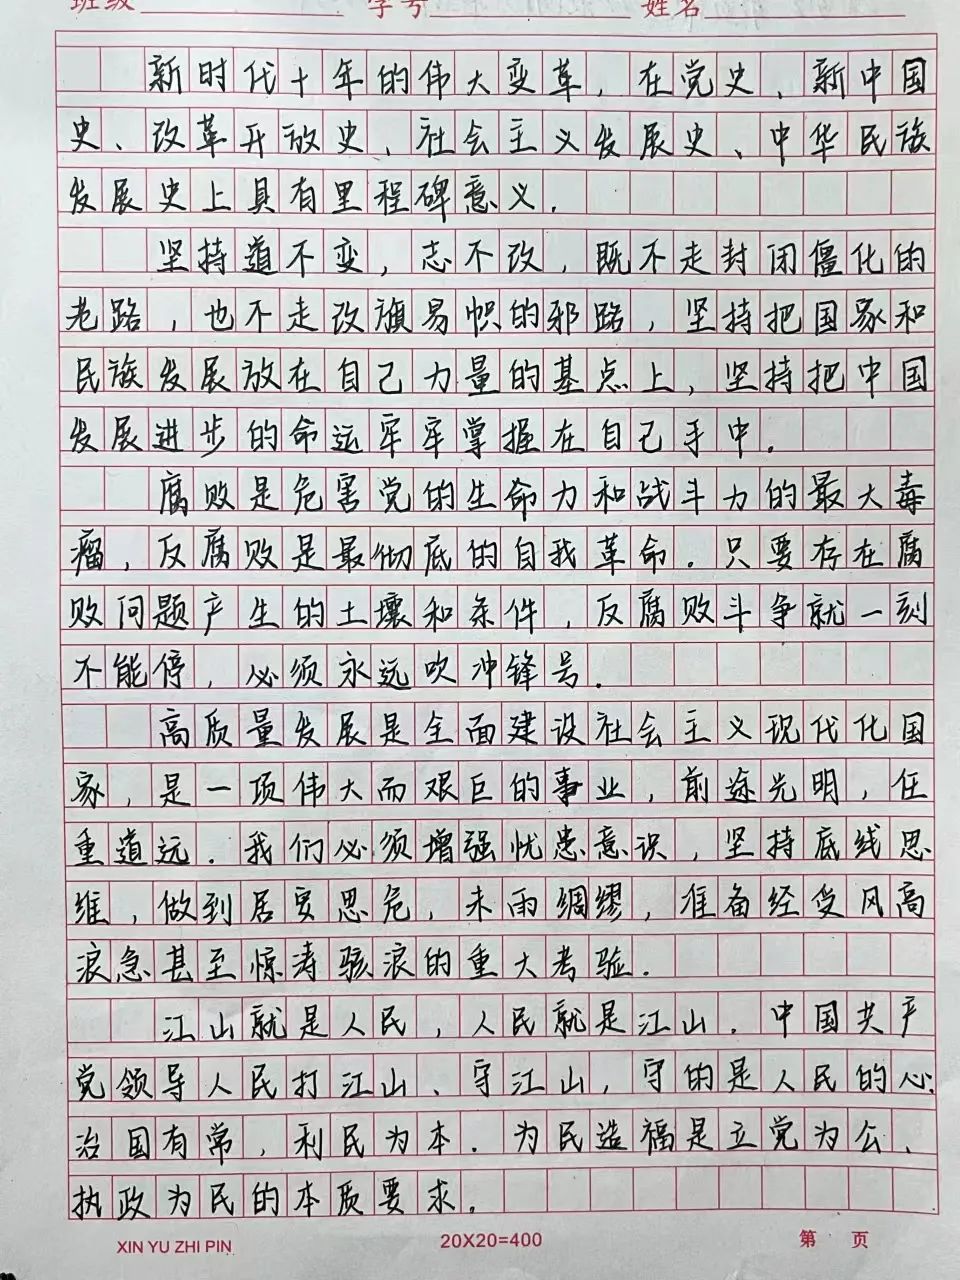 班级 学号 姓名
新时代十年的伟大变革，在党史、新中国
史、改革开放史、社会主义发展史、中华民族
发展史上具有里程碑意义.
坚持道不变，志不改，既不走封闭僵化的
老路，也不走改旗易帜的邪路，坚持把国家和
民族发展放在自己力量的基点上，坚持把中国
发展进步的命运牢牢掌握在自己手中.
腐败是危害党的生命力和战斗力的最大毒
瘤，反腐败是最彻底的自我革命.只要存在腐
败问题产生的土壤和条件，反腐败斗争就一刻
不能停，必须永远吹冲锋号.
高质量发展是全面建设社会主义现代化国
家，是一项伟大而艰巨的事业，前途光明，任
重道远.我们必须增强忧患意识，坚持底线思
维，做到居安思危，未雨绸缪，准备经受风高
浪急甚至惊涛骇浪的重大考验.
江山就是人民，人民就是江山.中国共产
党领导人民打江山、守江山，守的是人民的心.
治国有常，利民为本.为民造福是立党为公、
执政为民的本质要求.
XIN YU ZHI PIN 20X20=400 第 页